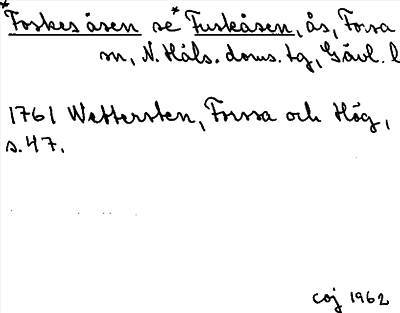 *Foskesåsen se *Fuskåsen, ås, Forsa
sn, N. Häls. doms. tg, Gävl. l
1761 Wettersten, Forssa och Hög,
s. 47.
coj 1962